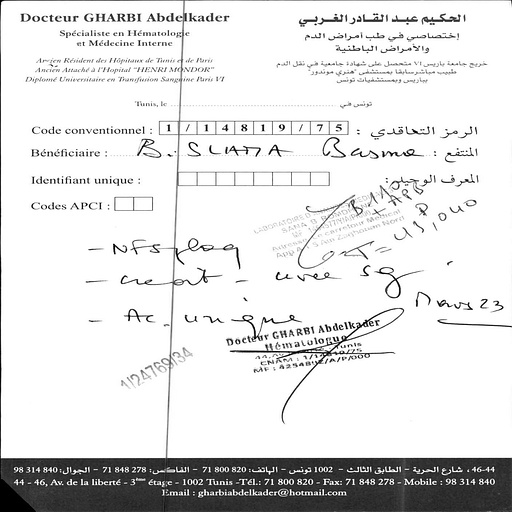 Docteur GHARBI Abdelkader
Spécialiste en Hématologie
et Médecine Interne
Ancien Résident des Hôpitaux de Tunis et de Paris
Ancien Attaché à l'Hopital "HENRI MONDOR"
Diplomé Universitaire en Transfusion Sanguine Paris VI
الحكيم عبد القادر الغربي
إختصاصي في طب أمراض الدم
والأمراض الباطنية
خريج جامعة باريس VI متحصل على شهادة جامعية في نقل الدم
طبيب مباشر سابقا بمستشفى "هنري موندور"
بباريس وبمستشفيات تونس
Tunis, le تونس في
Code conventionnel : 1/14819/75 الرمز التعاقدي :
Bénéficiaire : B. SLAMA Basma المنتفع :
Identifiant unique : المعرف الوحيد :
Codes APCI :
B 110
+ APB
= 45,040
- NFS plaq
- creat - uree sg
- Ac. unique
Mars 23
Docteur GHARBI Abdelkader
Hématologue
Tunis
CNAM : 1/14819/75
MF : 425489Z/A/P/000
1/24769/34
44-46 ، شارع الحرية - الطابق الثالث - 1002 تونس - الهاتف: 71 800 820 - الفاكس: 71 848 278 - الجوال: 98 314 840
44 - 46, Av. de la liberté - 3ème étage - 1002 Tunis -Tél.: 71 800 820 - Fax: 71 848 278 - Mobile : 98 314 840
Email : gharbiabdelkader@hotmail.com